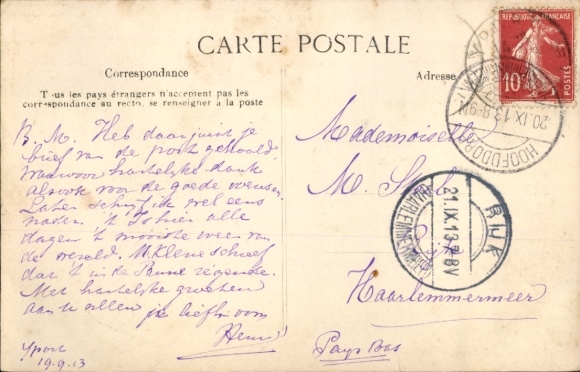 CARTE POSTALE
Correspondance
Tous les pays étrangers n'acceptent pas les
correspondance au recto, se renseigner à la poste
B. M. Heb daar juist je
brief van de post gehaald.
Waarvoor hartelijke dank
alsook voor de goede wensen.
Later schrijf ik wel eens
nader. 't Is hier alle
dagen 't mooiste weer van
de wereld. M. Klene schreef
dat 't in de regende.
Met hartelijke groeten
aan te allen je liefh. oom
19.9.13
Adresse
Mademoiselle
M.
Rijk
Haarlemmermeer
Pays Bas
REPUBLIQUE FRANÇAISE
10
POSTES
HOOFDDORP
20 IX 13
RIJK
21.IX.13 7-8V
(HAARLEMMERMEER)